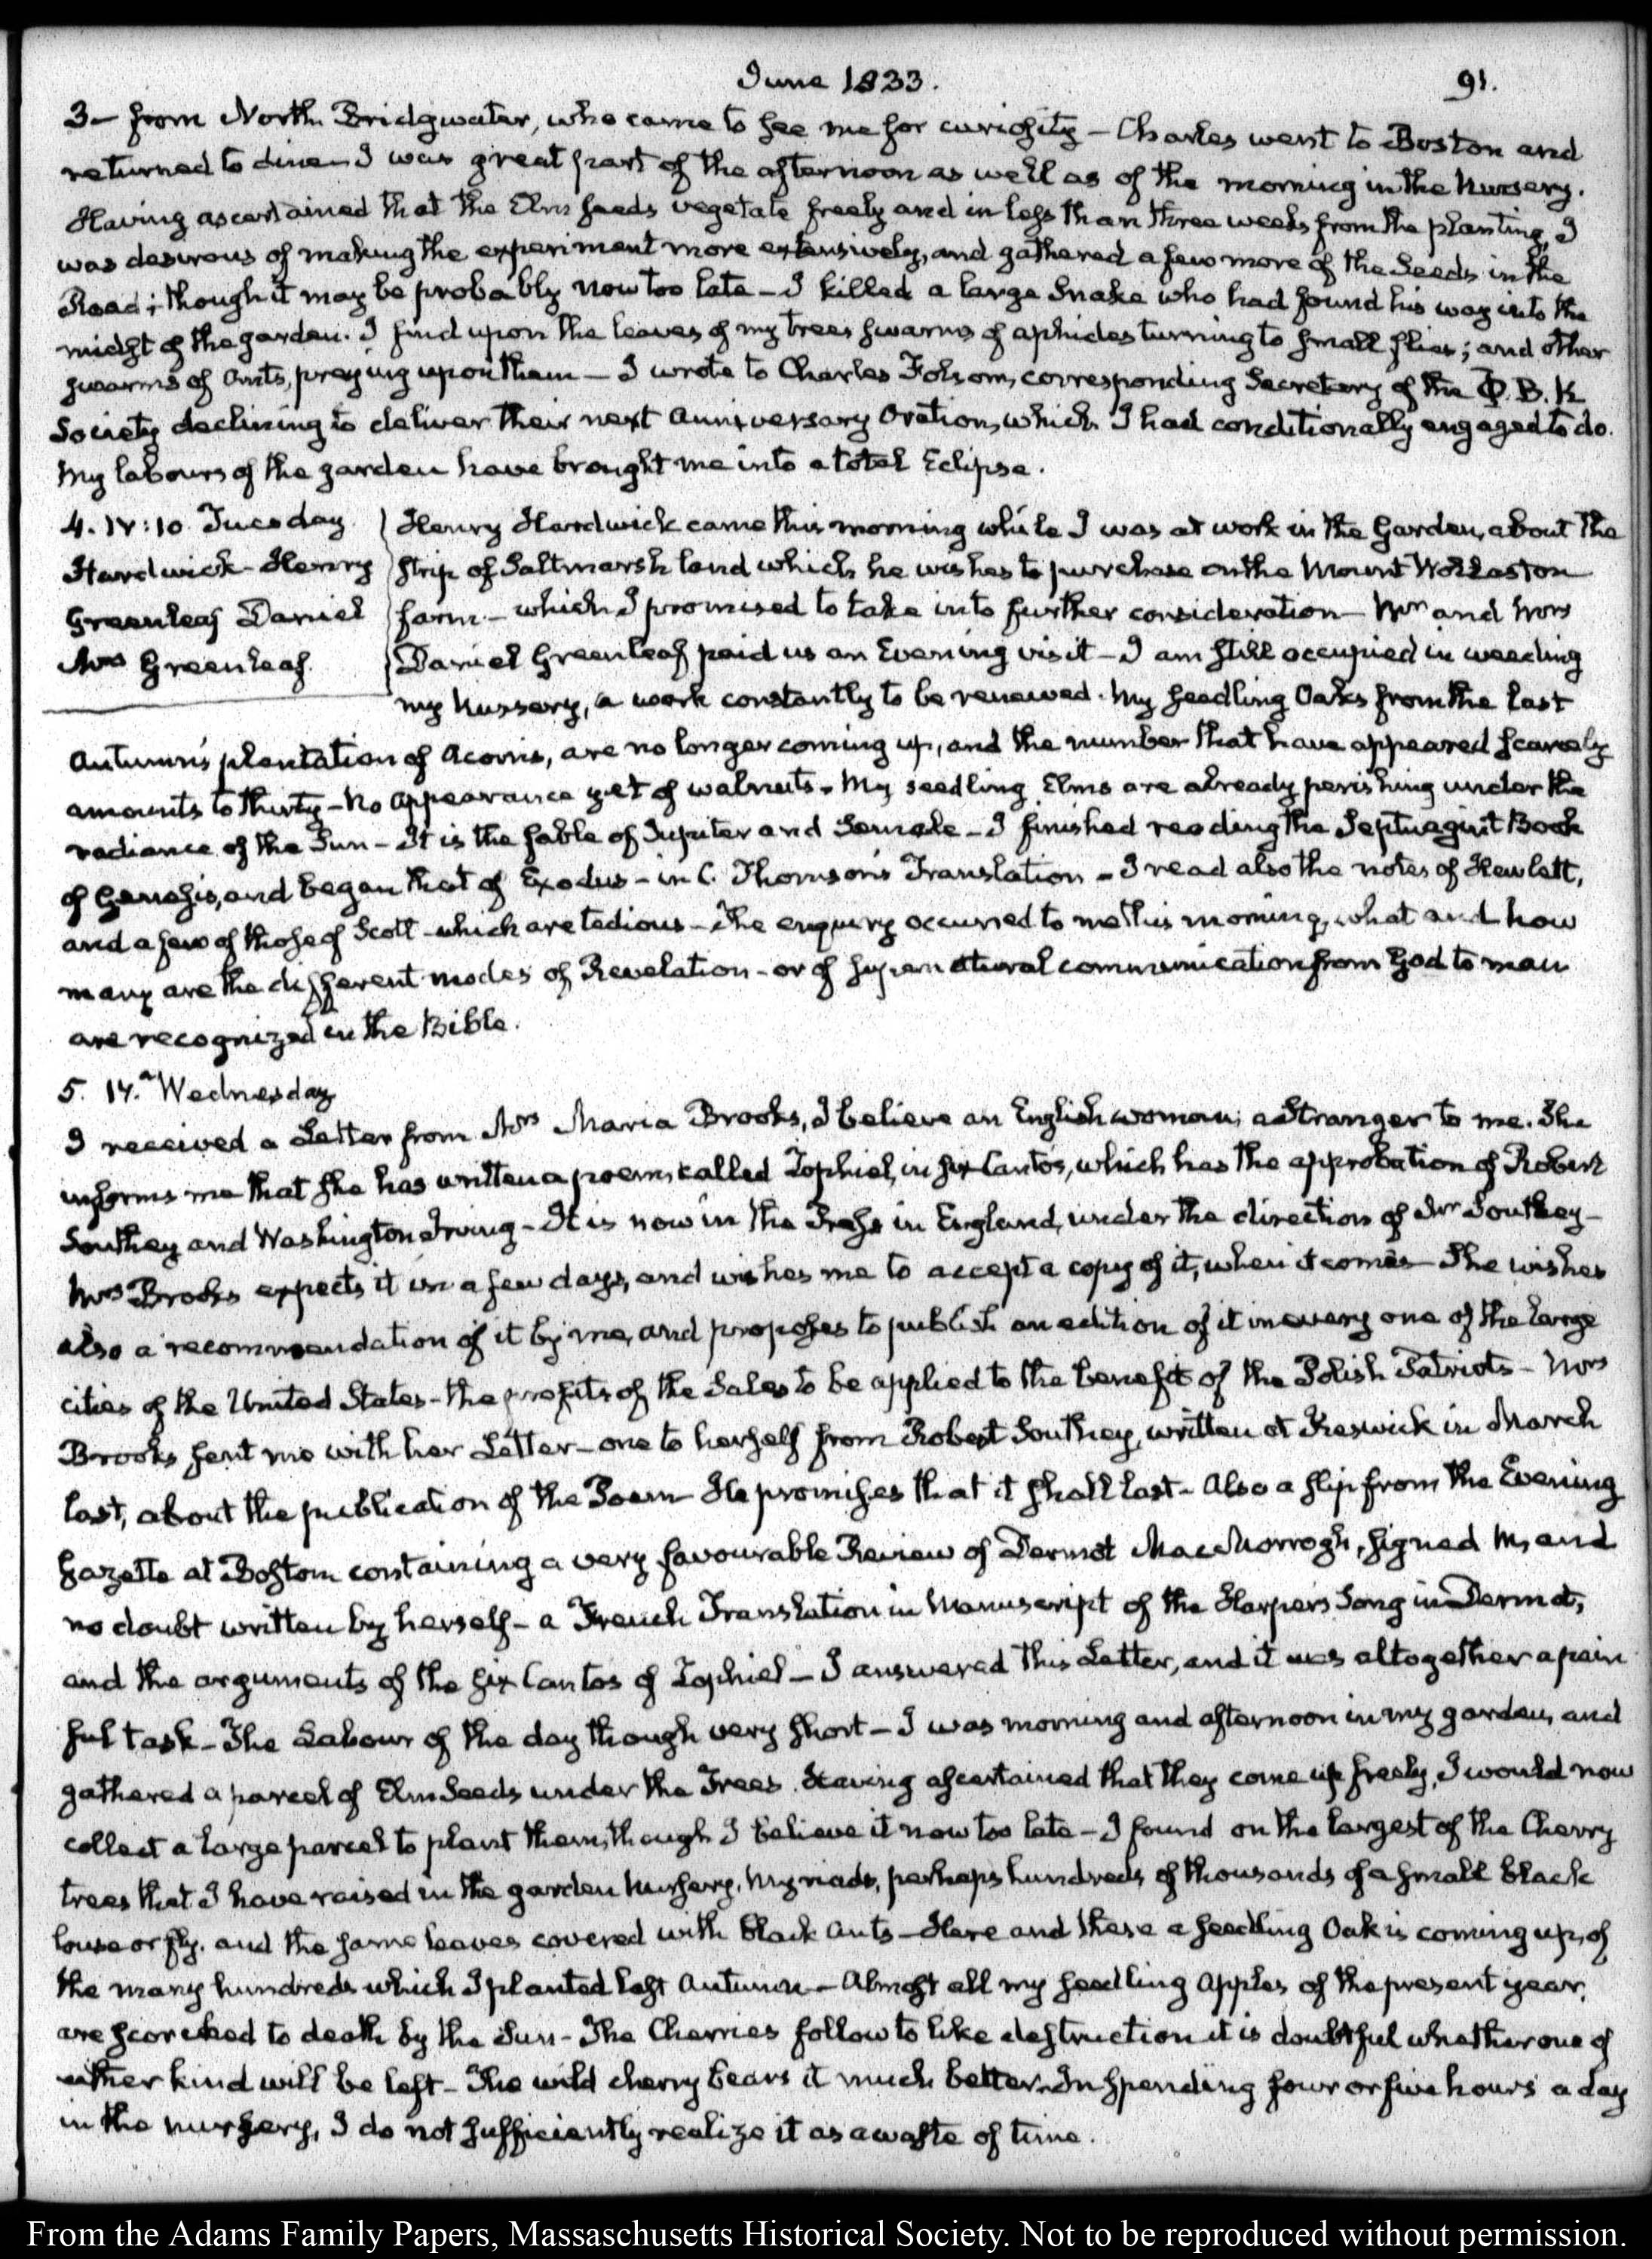 June 1833.
91.
3— from North Bridgwater, who came to see me for curiosity — Charles went to Boston and
returned to dine — I was great part of the afternoon as well as of the morning in the Nursery.
Having ascertained that the Elm seeds vegetate freely and in less than three weeks from the planting, I
was desirous of making the experiment more extensively, and gathered a few more of the Seeds in the
Road; though it may be probably now too late — I killed a large Snake who had found his way into the
midst of the garden. I find upon the leaves of my trees swarms of aphides turning to small flies; and other
swarms of Ants, preying upon them — I wrote to Charles Folsom, corresponding Secretary of the Φ. B. K
Society declining to deliver their next anniversary Oration, which I had conditionally engaged to do.
My labours of the garden have brought me into a total Eclipse.
4. IV:10. Tuesday.
Hardwick - Henry
Greenleaf Daniel
Mrs Greenleaf.
Henry Hardwick came this morning while I was at work in the Garden, about the
strip of Saltmarsh land which he wishes to purchase on the Mount Wollaston
farm. — which I promised to take into further consideration — Mr and Mrs
Daniel Greenleaf paid us an Evening visit — I am still occupied in weeding
my Nursery, a work constantly to be renewed. My seedling Oaks from the last
Autumn's plantation of Acorns, are no longer coming up, and the number that have appeared scarcely
amounts to thirty — No appearance yet of walnuts. My seedling Elms are already perishing under the
radiance of the Sun — It is the fable of Jupiter and Semele — I finished reading the Septuagint Book
of Genesis, and began that of Exodus — in C. Thomson's Translation — I read also the notes of Hewlett,
and a few of those of Scott — which are tedious — The enquiry occurred to me this morning, what and how
many are the different modes of Revelation — or of supernatural communication from God to man
are recognized in the Bible.
5. IV. Wednesday
I received a Letter from Mrs Maria Brooks, I believe an English woman; a Stranger to me. She
informs me that she has written a poem, called Zophiel, in six Cantos, which has the approbation of Robert
Southey and Washington Irving — It is now in the Press in England, under the direction of Mr Southey —
Mrs Brooks expects it in a few days, and wishes me to accept a copy of it, when it comes — She wishes
also a recommendation of it by me, and proposes to publish an edition of it in every one of the large
cities of the United States — the profits of the Sales to be applied to the benefit of the Polish Patriots — Mrs
Brooks sent me with her Letter — one to herself from Robert Southey, written at Keswick in March
last, about the publication of the Poem — He promises that it shall last — Also a slip from the Evening
Gazette at Boston containing a very favourable Review of Dermot MacMorrogh, signed M, and
no doubt written by herself — a French Translation in Manuscript of the Harper's Song in Dermot,
and the arguments of the six Cantos of Zophiel — I answered this Letter, and it was altogether a pain
ful task — The Labour of the day though very short — I was morning and afternoon in my garden, and
gathered a parcel of Elm Seeds under the Trees. Having ascertained that they come up freely, I would now
collect a large parcel to plant them, though I believe it now too late — I found on the largest of the Cherry
trees that I have raised in the garden Nursery, Myriads, perhaps hundreds of thousands of a small black
louse or fly. and the same leaves covered with black ants — Here and there a seedling Oak is coming up, of
the many hundreds which I planted last Autumn — Almost all my seedling Apples of the present year,
are scorched to death by the Sun — The Cherries follow to like destruction it is doubtful whether one of
either kind will be left — The wild cherry bears it much better. In spending four or five hours a day
in the nursery, I do not sufficiently realize it as a waste of time.
From the Adams Family Papers, Massaschusetts Historical Society. Not to be reproduced without permission.